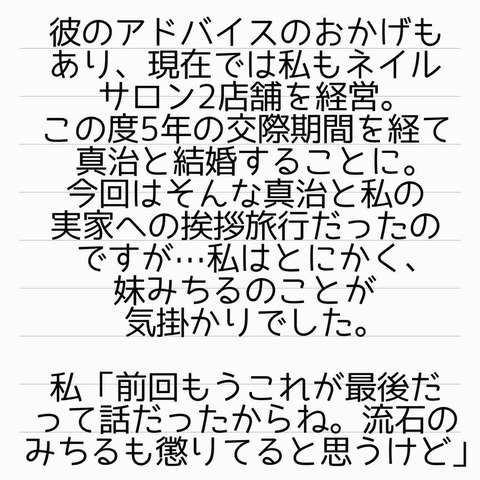 彼のアドバイスのおかげも
あり、現在では私もネイル
サロン2店舗を経営。
この度5年の交際期間を経て
真治と結婚することに。
今回はそんな真治と私の
実家への挨拶旅行だったの
ですが…私はとにかく、
妹みちるのことが
気掛かりでした。
私「前回もうこれが最後だ
って話だったからね。流石の
みちるも懲りてると思うけど」